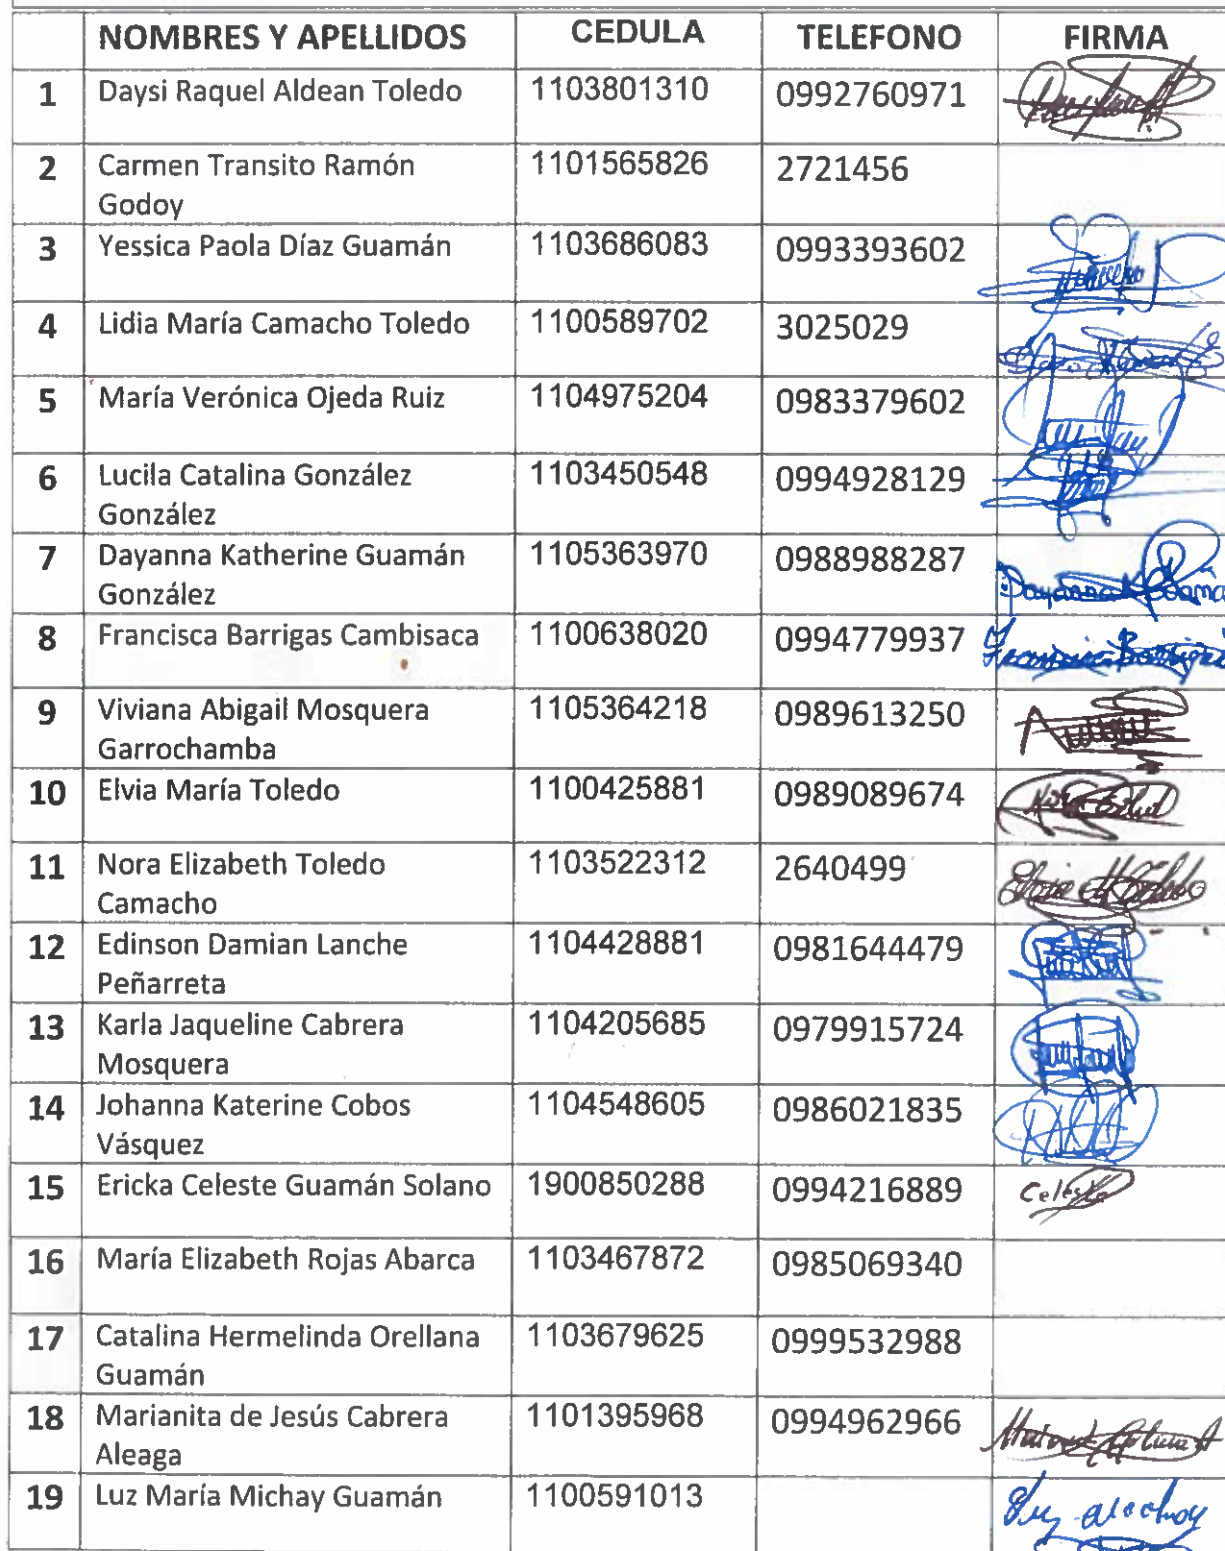 NOMBRES Y APELLIDOS CEDULA TELEFONO FIRMA
1 Daysi Raquel Aldean Toledo 1103801310 0992760971
2 Carmen Transito Ramón 1101565826 2721456
Godoy
3 Yessica Paola Díaz Guamán 1103686083 0993393602
4 Lidia María Camacho Toledo 1100589702 3025029
5 María Verónica Ojeda Ruiz 1104975204 0983379602
6 Lucila Catalina González 1103450548 0994928129
González
7 Dayanna Katherine Guamán 1105363970 0988988287
González Dayanna
8 Francisca Barrigas Cambisaca 1100638020 0994779937 Francisca
9 Viviana Abigail Mosquera 1105364218 0989613250
Garrochamba
10 Elvia María Toledo 1100425881 0989089674
11 Nora Elizabeth Toledo 1103522312 2640499
Camacho
12 Edinson Damian Lanche 1104428881 0981644479
Peñarreta
13 Karla Jaqueline Cabrera 1104205685 0979915724
Mosquera
14 Johanna Katerine Cobos 1104548605 0986021835
Vásquez
15 Ericka Celeste Guamán Solano 1900850288 0994216889 Celeste
16 María Elizabeth Rojas Abarca 1103467872 0985069340
17 Catalina Hermelinda Orellana 1103679625 0999532988
Guamán
18 Marianita de Jesús Cabrera 1101395968 0994962966
Aleaga
19 Luz María Michay Guamán 1100591013 Luz